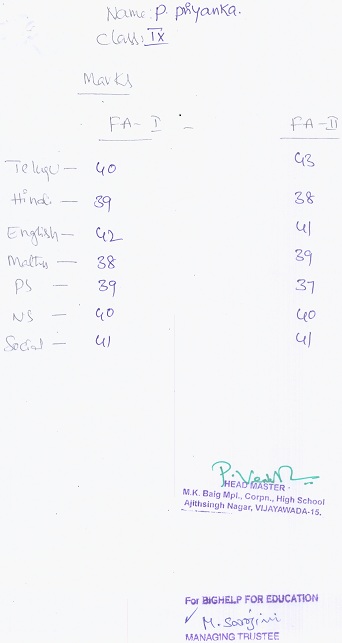 Name: P. Priyanka.
Class: IX
Marks
FA-I - FA-II
Telugu - 40 43
Hindi - 39 38
English - 42 41
Maths - 38 39
PS - 39 37
NS - 40 40
Social - 41 41
HEAD MASTER
M.K. Baig Mpl., Corpn., High School
Ajithsingh Nagar, VIJAYAWADA-15.
For BIGHELP FOR EDUCATION
M. Sarojini
MANAGING TRUSTEE